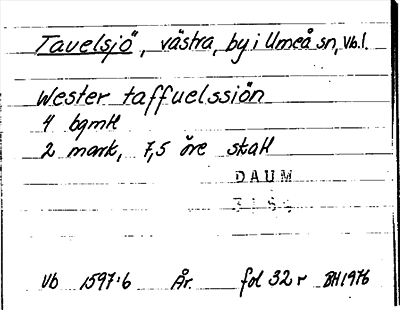 Tavelsjö, västra, by i Umeå sn, Vb.l.
Wester taffuelssiön
4 bgmtl
2 mark, 7,5 öre skatt
DAUM
Vb 1597:6 År. fol 32 r BH1976